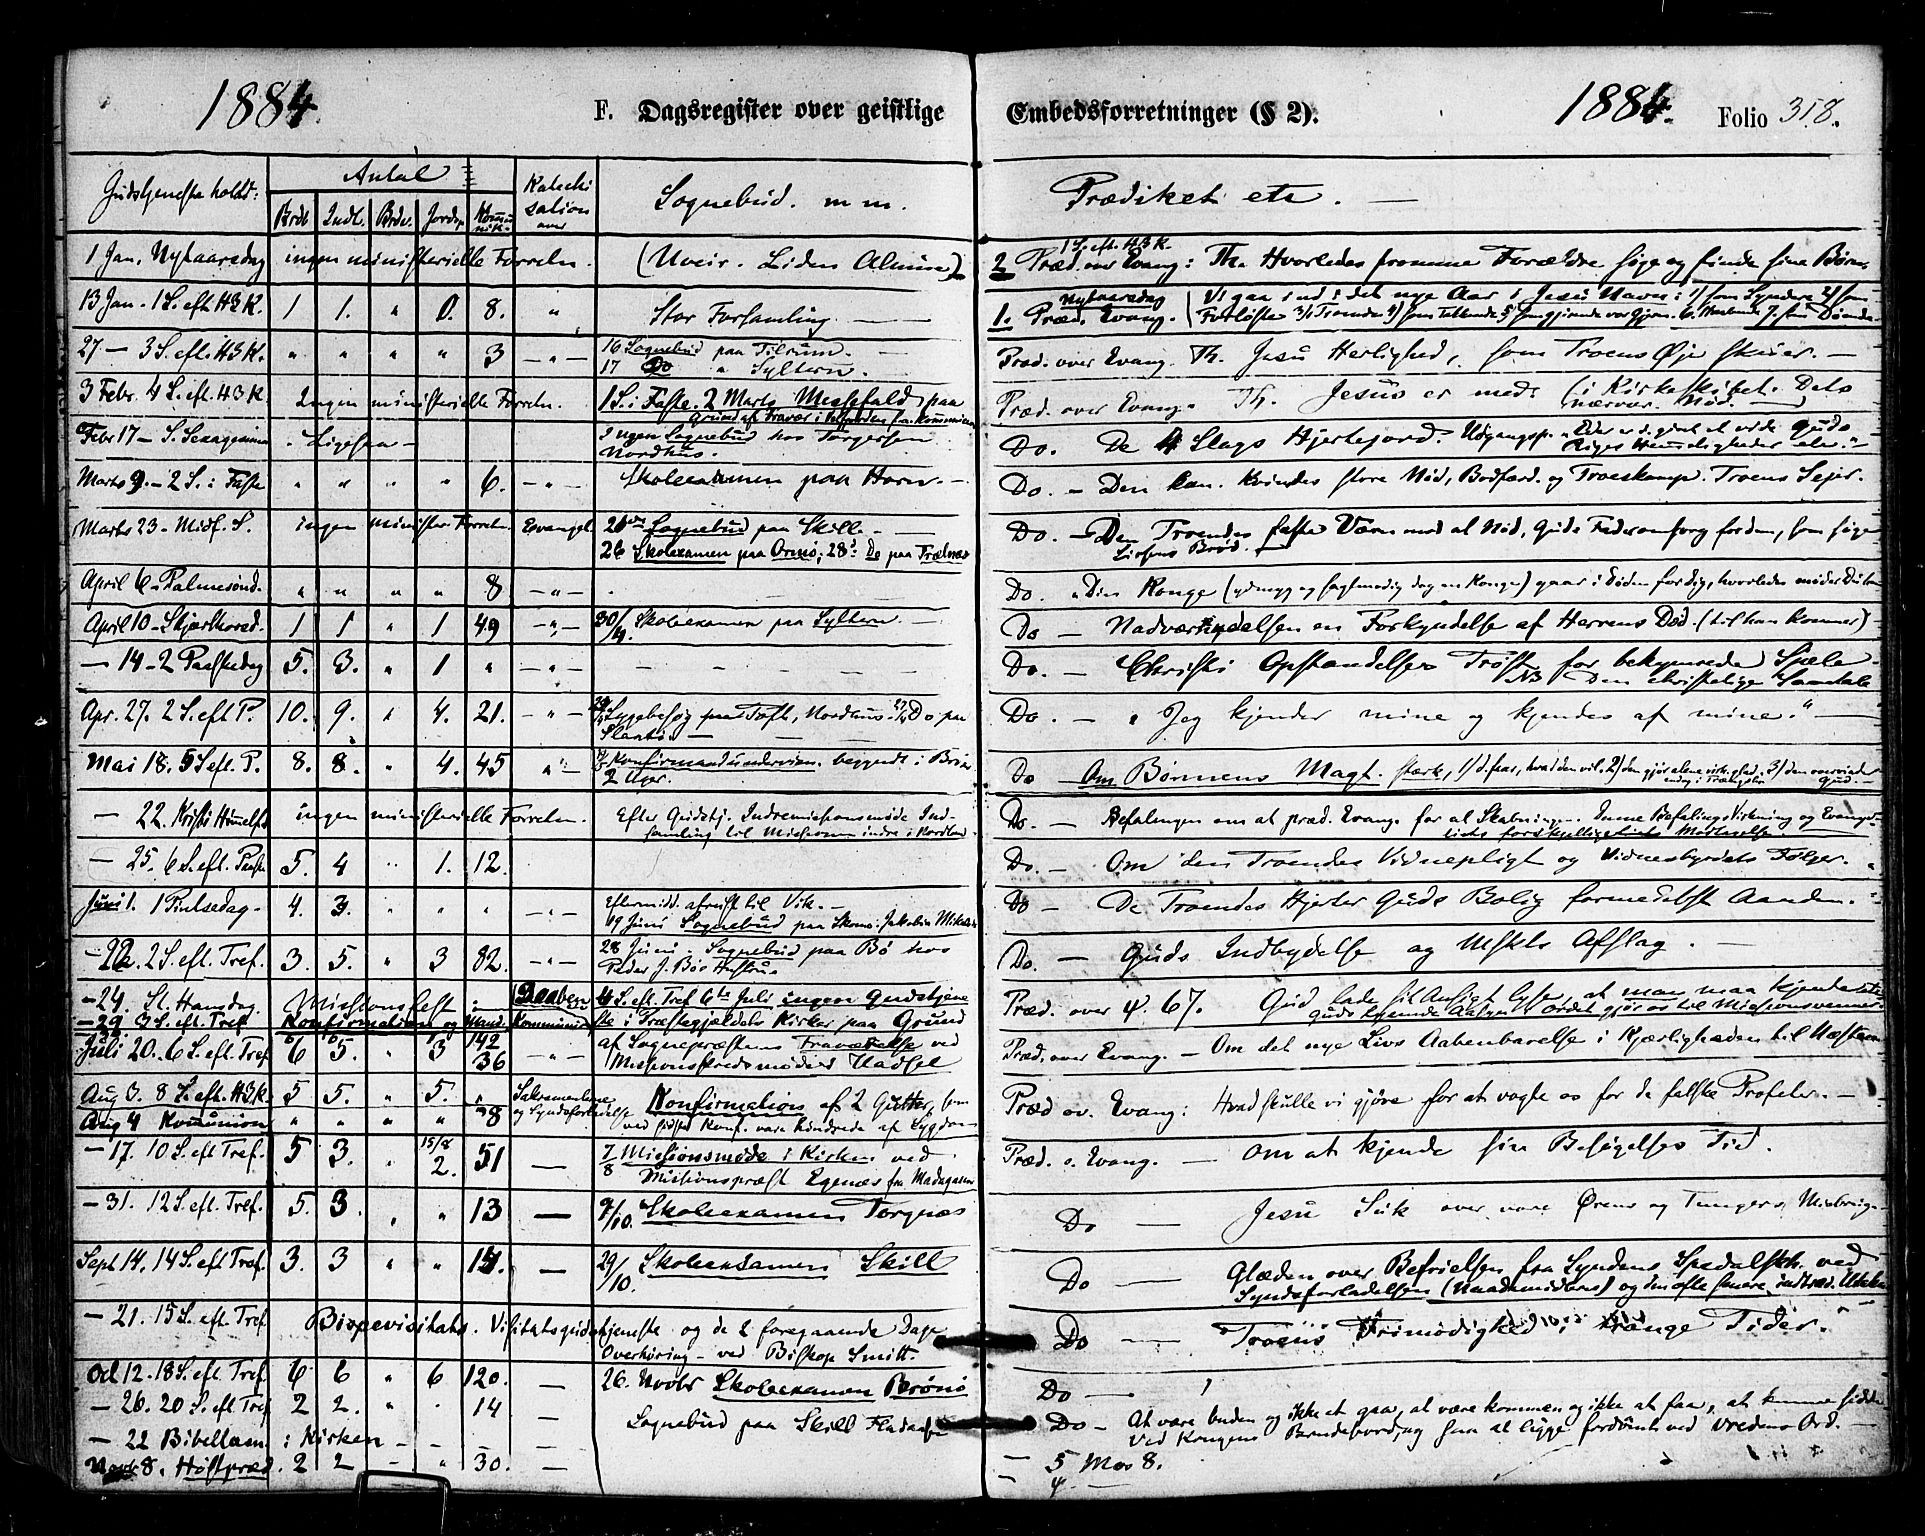 1884.
F. Dagsregister over geistlige
Embedsforretninger (§ 2).
1884.
Folio 318.
Gudstjeneste holdt:
Antal
Brdt
Indl.
Brdv.
Jordsp.
Kommunik.
Katechisation over
Sognebud. m m.
Prædiket etc. —
1 Jan. Nytaarsdag ingen ministerielle Forretn. (Uveir. Liden Almue)
2 Præd. over Evang: Th. Hvorledes fromme Forældre søge og finde sine Børn.
1 S. eft. H3K.
13 Jan. 1 S. eft H3K. 1 1. " 0. 8. " Stor Forsamling. —
1. Præd. Evang. Nytaarsdag Vi gaa ind i det nye Aar i Jesu Navn: 1) som Syndere 2) som
Forløste
27 — 3 S. eft. H3K. " " " " 3 — " — 16 Sognebud paa Tilrum. —
17 Do " Syltern.
Præd. over Evang. Th. Jesu Herlighed, som Troens Øje skuer. —
3 Febr. 4 S. eft. H3K. Ingen ministerielle Forretn. 1 S. i Faste. 2 Marts Messefald paa
Grund af Fravær i
Præd. over Evang. Th. Jesus er med (i Kirkeskibet. Dets
nærvær. Nød.
Febr 17 — S. Sexagesima " Ligesaa — Ingen Sognebud hos Torgersen
Nordhus.
Do. De 4 Slags Hjertejord. Udgangsp. "Eder er d. givet at vide Guds
Riges Hemmeligheder etc."
Marts 9. — 2 S. i Faste " " " " 6. — " — Skoleexamen paa Horn. —
Do. — Den kan. Kvindes store Nød, Bodfærd. og Troeskamp. Troens Sejr.
Marts 23 — Midf. S. ingen minister. Forretn. Evangel. Sognebud paa Skille. —
26 Skoleexamen paa Ormø; 28. Do paa Trælnæs
Do. — Den Troendes faste Værn mod al Nød, Guds Faderomsorg for dem, som søge
Livsens Brød. —
April 6 — Palmesønd. " " " " 8 — " —
Do. "Din Konge (ydmyg og sagtmodig dog en Konge) gaar i Døden for dig, hvorledes møder Du ham
April 10 — Skjærthorsd. 1 1 " 1 49 — " — 30/4. Skoleexamen paa Syltern —
Do — Nadverhydelsen en Forkyndelse af Herrens Død (til han kommer)
— 14 — 2 Paaskedag 5. 3. " 1 " — " — — — —
Do. — Christi Opstandelses Trøst for bekymrede Sjæle —
NB Den christelige Samtale
Apr. 27. 2 S. eft P. 10. 9. " 4. 21. — " — Sygebesøg paa Toft, Nordhus. Do paa
Do. — "Jeg kjender mine og kjendes af mine." —
Mai 18. 5 S eft. P. 8. 8. " 4. 45 " — Konfirmandundervisn. begyndt i Brønø
2 Apr.
Do Om Bønnens Magt. stærk, 1) d. faar, hvad den vil. 2)
— 22. Kristi Himmelf. ingen ministerielle Forretn. Efter Gudstj. Indremissionsmøde Ind-
samling til Missionen indre i Nordland
Do. — Befalingen om at præd. Evang. for al Skabningen. Denne Befalings Virkning og Evange-
liets forskjellige Modtagelse
— 25. 6 S. eft. Paaske 5. 4 " 1. 12.
Do. — Om den Troendes Vidnepligt og Vidnesbyrdets Følger.
Juni 1. 1 Pintsedag — 4. 3. " " " — " — Eftermidd. afreist til Vik. —
19 Juni Sognebud paa Skomo: Jakobine Mikals
Do — De Troendes Hjerter Guds Bolig formedelst Aanden. —
— 22. 2 S. eft. Tref. 3. 5. " 3 82. — " — 28 Juni. Sognebud paa Bø hos
Peder J. Bøs Hustru.
Do. — Guds Indbydelse og Msklts Afslag. —
— 24. St. Hansdag. Missionsfest. Daaben 4 S. eft. Tref 6te Juli ingen Gudstjene
— 29 3 S. eft. Tref Konfirmation og Kommunion ste i Præstegjældets Kirker paa Grund
Præd. over ψ. 67. Gud lade sit Ansigt lyse, at man maa kjende
Ordet gjør os til Missionsvenner.
Juli 20. 6 S. eft. Tref 6 5. " 3 142
36 — " — af Sognepræstens Fraværelse ved
Missionskredsmøde i Hadsel
Præd. over Evang. — Om det nye Livs Aabenbarelse i Kjærligheden til Næsten
Aug 3. 8 S. eft. H3K. 5 5. " 5. " Sakramenterne
og Syndsforladelse Konfirmation af 2 Gutter, som
Aug 4 Kommunion " " " " 38 ved sidste Konf. vare hindrede af Sygdom
Præd ov. Evang: Hvad skulle vi gjøre for at vogte os for de falske Profeter. —
— 17. 10 S. eft Tref. 5 3. " 15/8
2. 51 — 7/8 Missionsmøde i Kirken ved
Missionspræst Egenæs fra Madagascar
Præd. o. Evang. — Om at kjende sin Besøgelses Tid.
— 31. 12 S. eft. Tref. 5. 3. " " 13 — 9/10. Skoleexamen Torgnæs
Do — Jesu Suk over vore Ørens og Tungers Misbrug
Sept 14. 14 S. eft Tref. 3. 3 " " 14. — 29/10. Skoleexamen Skill
Do — Glæden over Befrielsen fra Syndens Spedalskh. ved
Syndsforladelsen (Naademidlerne) og den ofte senere indtræd.
— 21. 15 S. eft. Tref Bispevisitats. Visitatsgudstjeneste og de 2 foregaaende Dage
Overhøring — ved Biskop Smitt.
Do — Troens Frimodighed i trange Tider.
Oct 12. 18 S. eft. Tref. 6 6 " 6 120. — 26. Novbr Skoleexamen Brønø
Do —
— 26. 20 S. eft Tref 2 2. " " 14 — Sognebud paa Skill
Do — At være buden og ikke at gaa, at være kommen og ikke at faa, at kunne sidde
ved Kongens Bord, og saa at ligge fordømt ved Vredens Ord. —
— 22 Bibellæsn. i Kirken — — — —
Novbr 8. Høstpræd. 2 2 — " 30. —
— 5 Mos 8.